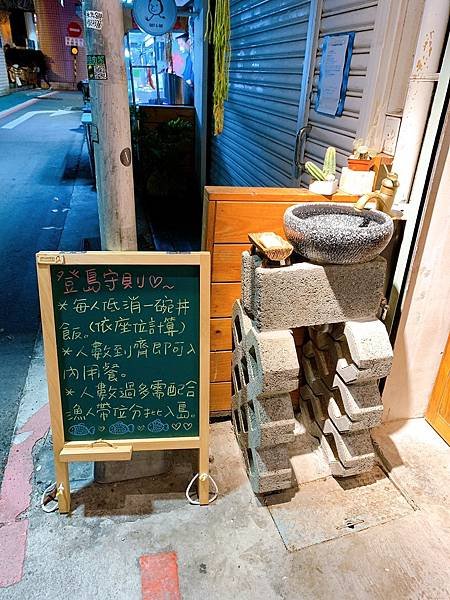 登島守則♡~
*每人低消一碗丼
飯。(依座位計算)
*人數到齊即可入
內用餐。
*人數過多需配合
漁人帶位分批入島。